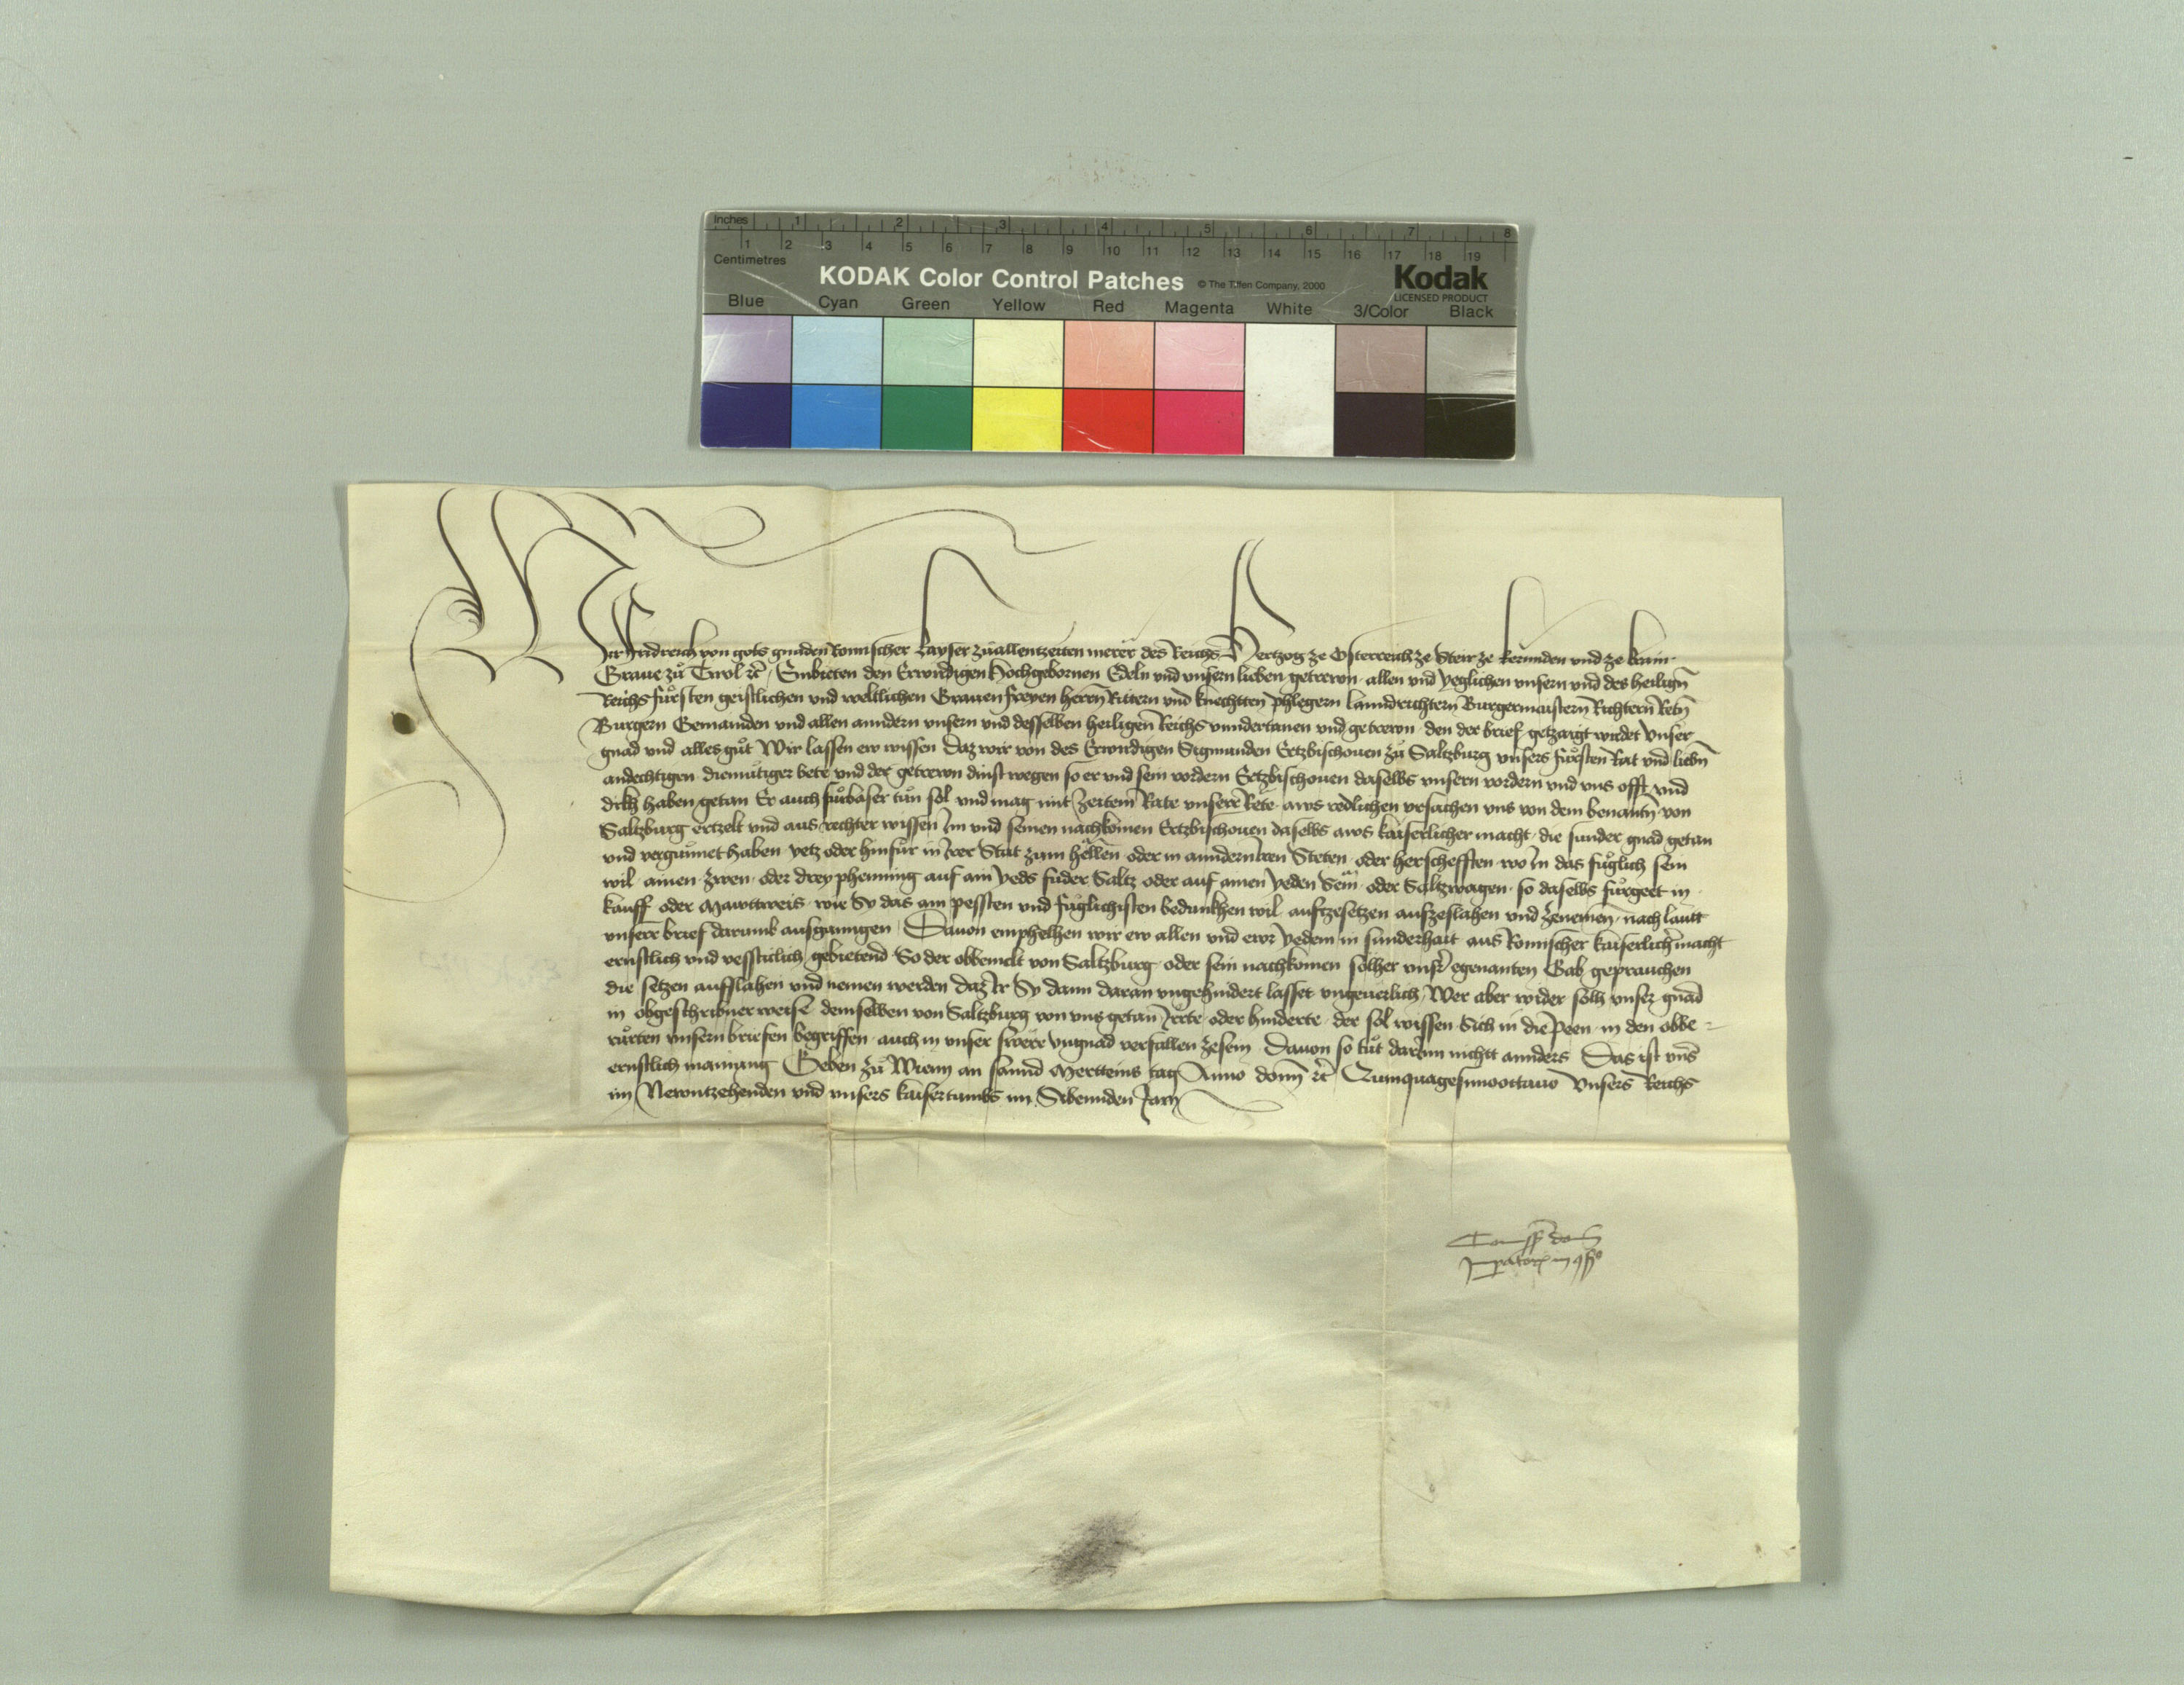 Inches 1 2 3 4 5 6 7 8
Centimetres 1 2 3 4 5 6 7 8 9 10 11 12 13 14 15 16 17 18 19
KODAK Color Control Patches © The Tiffen Company, 2000 Kodak
LICENSED PRODUCT
Blue Cyan Green Yellow Red Magenta White 3/Color Black
Wir Fridreich von gots gnaden Romischer kayser zuallenntzeiten merer des Reichs Hertzog ze Osterreich ze Steir ze kernnden und ze krain
Graue zů Tirol ꝛc̃ Embieten den Erwirdigen Hochgebornen Edeln und unsern lieben getrewn allen und yeglichen unsern und des heilign̄
Reichs fůrsten geistlichen und weltlichen Grauen freyen herrn̄ Rittern und knechtten phlegern lanndrichtern Burgermaistern Richtern̄ Retn̄
Burgern Gemainden und allen anndern unsern und desselben heiligen Reichs unndertanen und getrewn den der brief getzaigt wirdet Unser
gnad und alles gůt Wir lassen ew wissen Daz wir von des Erwirdigen Sigmunden Ertzbischouen zu Saltzburg unsers fůrsten Rat und liebn̄
andechtigen diemůtiger bete und der getrewn dinst wegen so er und sein vordern Ertzbischouen daselbs unsern vordern und uns offt und
dikh haben getan Er auch fůrbaser tůn sol und mag mit zeitem̄ Rate unserr̄ Rete aws redlichen ursachen uns von dem benantn̄ von
Saltzburg ertzelt und aus rechter wissen Im und seinen nachkomen Ertzbischouen daselbs aws kaiserlicher macht die sunder gnad getan
und vergunnet haben yetz oder hinfůr in Irer Stat zum hellen oder in anndern Iren Steten oder herschefften wo In das fůglich sein
wil ainen zwen oder drey phenning auf ain yeds fuder Saltz oder auf ainen yeden Sem̄ oder Saltzwagen so daselbs fůrgeet in
kauff oder Mawttweis wie Sy das am pessten und fůglichisten bedunkhen wil aufzesetzen aufzeslahen und zenemen nach lautt
unserr brief darumb ausganngen Dauon emphelhen wir ew allen und ewr yedem in sunderhait aus Romischer kaiserlicher macht
ernstlich und vesstiklich gebietend So der obbemelt von Saltzburg oder sein nachkomen solher unsr̄ egenanten Gab geprauchen
die setzen aufslahen und nemen werden daz Ir Sy dann daran ungehindert lasset ungeuerlich Wer aber wider solh unser gnad
in obgeschribner weise demselben von Saltzburg von uns getan Irrte oder hinderte der sol wissen Sich in die Peen in den obbe-
růrten unsern briefen begriffen auch in unser swere ungnad verfallen zesein Dauon so tůt darInn nichtt annders Das ist uns̄
ernstlich mainung Geben zů Wienn an sannd Merttems tag Anno domi ꝛc̃ Quinquagesimooctauo Unsers Reichs
im Newntzehenden und unsers kaisertumbs im Sibennden Jarn
Com̄issio do
Imperatoris in